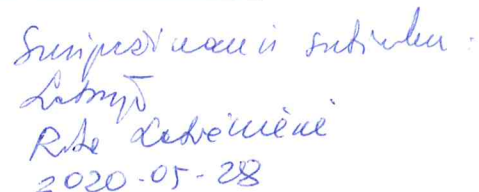 Susipažinau ir sutinku:
Rita Latvėnienė
2020-05-28